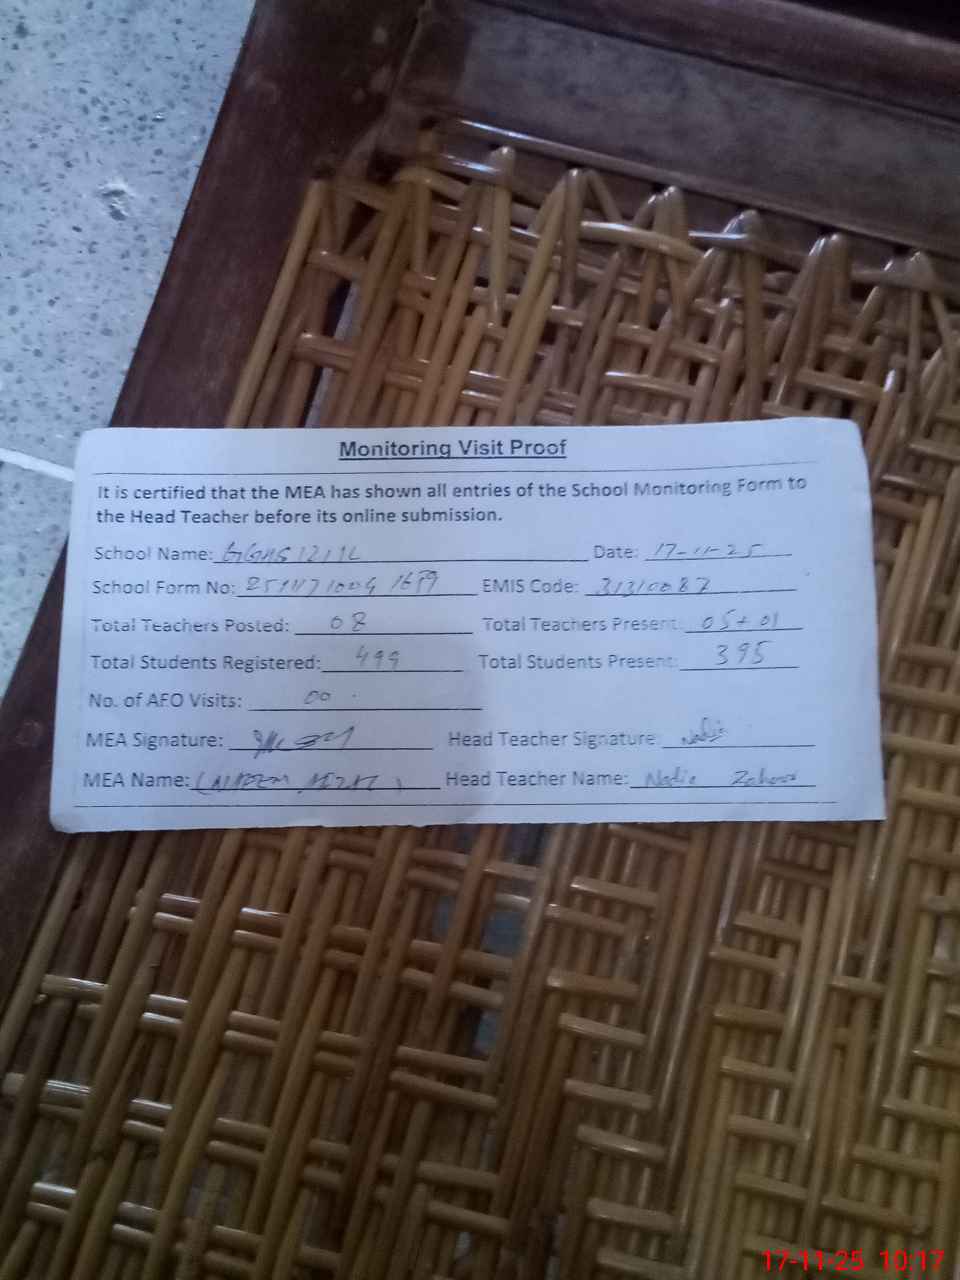 Monitoring Visit Proof
It is certified that the MEA has shown all entries of the School Monitoring Form to
the Head Teacher before its online submission.
School Name: GGHS 121 1L Date: 17-11-25
School Form No: EMIS Code: 31310087
Total Teachers Posted: 08 Total Teachers Present: 05+01
Total Students Registered: 499 Total Students Present: 395
No. of AFO Visits: 00
MEA Signature: Head Teacher Signature: Nadia
MEA Name: Head Teacher Name: Nadia Zahoor
17-11-25 10:17